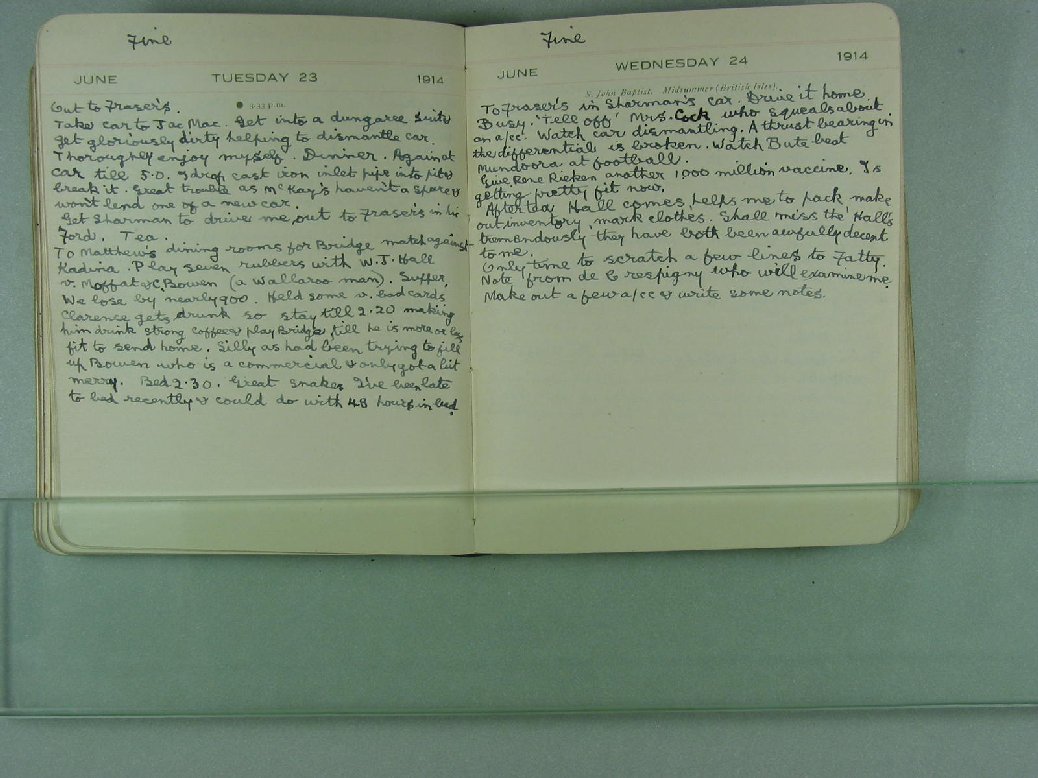 Fine
JUNE TUESDAY 23 1914
● 3.33 p.m.
Out to Fraser's.
Take car to Jac Mac. Get into a dungaree suit &
get gloriously dirty helping to dismantle car.
Thoroughly enjoy myself. Dinner. Again at
car till 5.0. I drop cast iron inlet pipe into pit &
break it. Great trouble as McKay's haven't a spare &
won't lend one of a new car.
Get Sharman to drive me out to Fraser's in his
Ford. Tea.
To Matthew's dining rooms for Bridge match against
Kadina. Play seven rubbers with W.J. Hall
v. Moffat & C. Bowen (a Wallaroo man). Supper.
We lose by nearly 900. Held some v. bad cards
Clarence gets drunk so stay till 2.20 making
him drink strong coffee & play Bridge till he is more or less
fit to send home. Silly as had been trying to fill
up Bowen who is a commercial & only got a bit
merry. Bed 2.30. Great snakes I've been late
to bed recently & could do with 48 hours in bed.
Fine
JUNE WEDNESDAY 24 1914
S. John Baptist. Midsummer (British Isles).
To Fraser's in Sharman's car. Drive it home.
Busy. 'Tell off' Mrs. Cock who squeals about
an a/cc. Watch car dismantling. A thrust bearing in
the differential is broken. Watch Bute beat
Mundoora at football.
Give Rene Rieken another 1,000 million vaccine. Is
getting pretty fit now.
After tea Hall comes, helps me to pack, make
out inventory, mark clothes. Shall miss the Hall's
tremendously they have both been awfully decent
to me.
Only time to scratch a few lines to Fatty.
Note from de Crespigny who will examine me
Make out a few a/cc & write some notes.